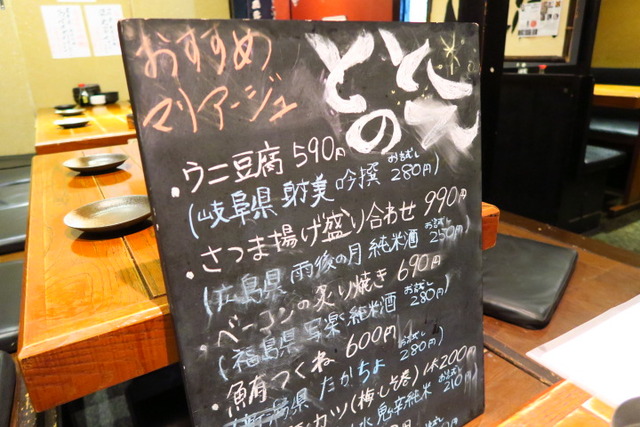 おすすめ
マリアージュ
とのと
・ウニ豆腐 590円
(岐阜県 射美 吟撰 お試し 280円)
・さつま揚げ盛り合わせ 990円
(広島県 雨後の月 純米酒 お試し 250円)
・ベーコンの炙り焼き 690円
(福島県 写楽 純米酒 お試し 280円)
・鮪つくね 600円
たかちよ お試し 280円)
カツ(梅しそ巻) 1本200円
鬼辛純米 お試し 210円